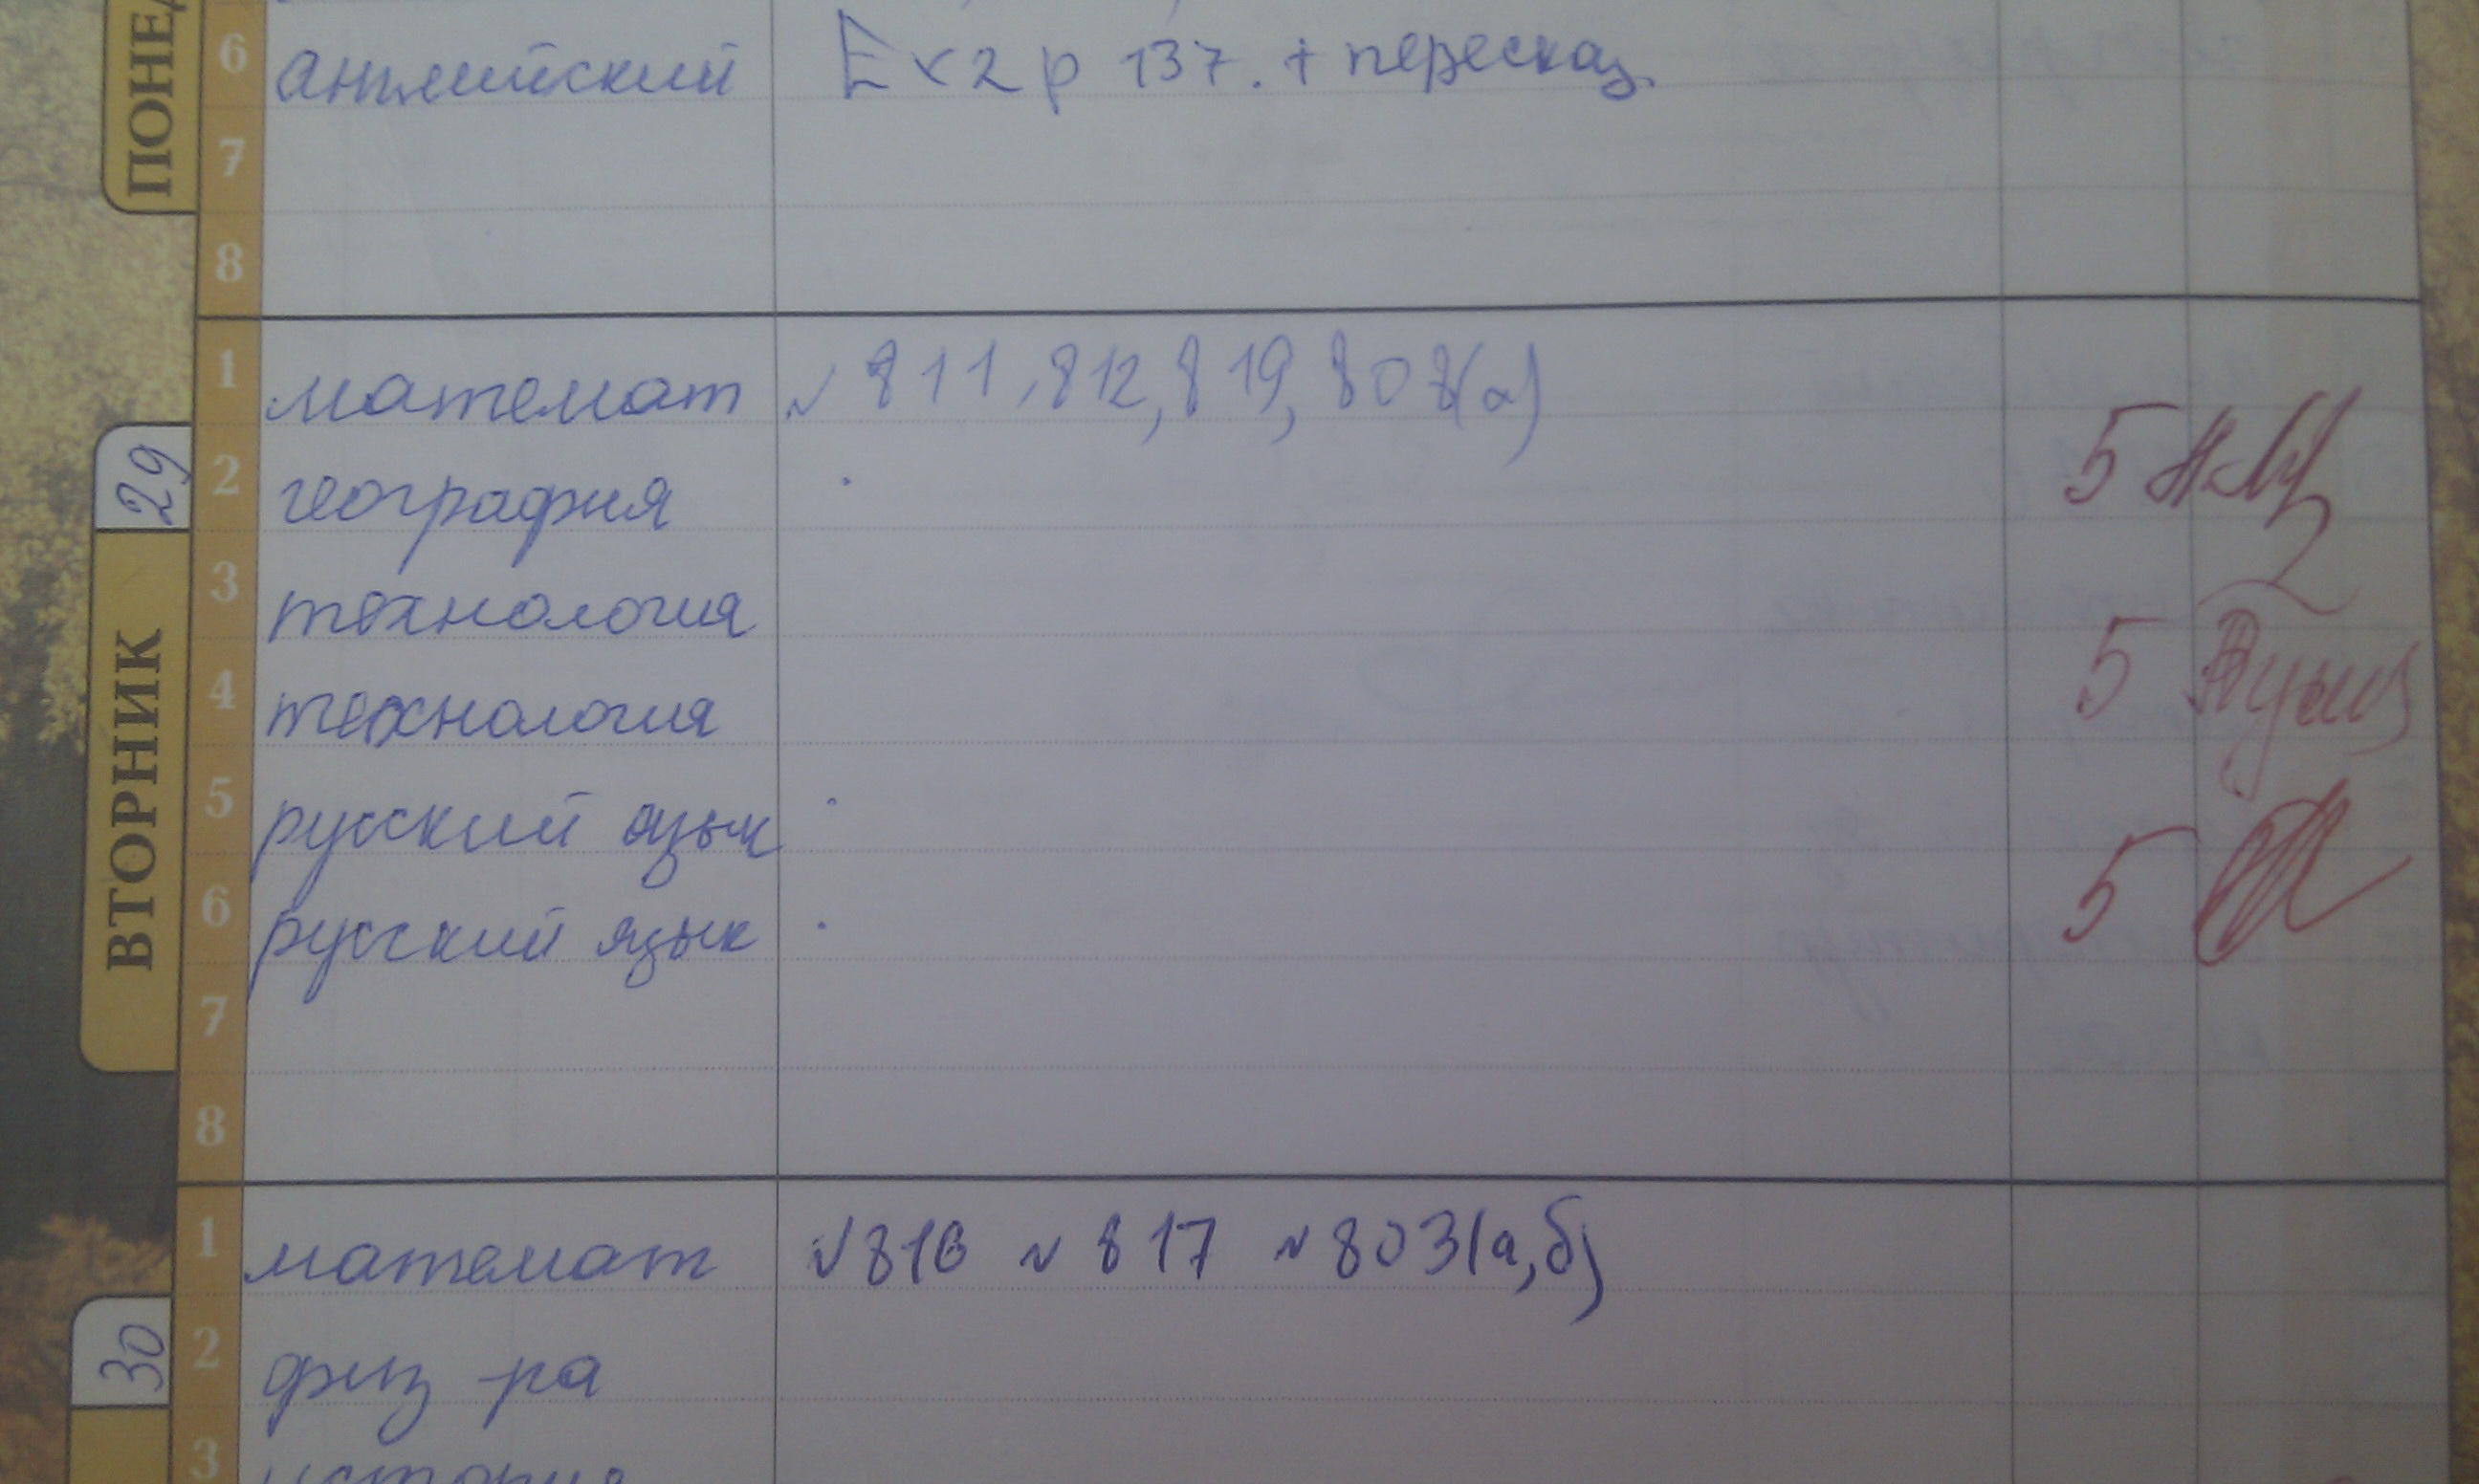 ПОНЕД
6 английский Ex 2 p 137. + пересказ.
7
8
29
ВТОРНИК
1 математ № 811, 812, 819, 808(а)
2 география 5
3 технология
4 технология 5
5 русский язык
6 русский язык 5
7
8
30
1 математ №816 №817 №803(а,б)
2 физ-ра
3 история